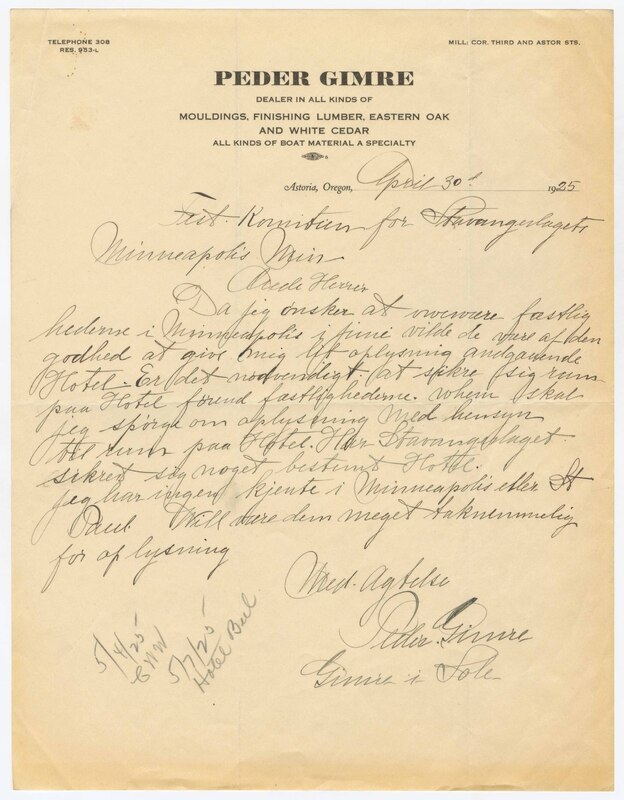 TELEPHONE 308
RES. 953-L
MILL: COR. THIRD AND ASTOR STS.
PEDER GIMRE
DEALER IN ALL KINDS OF
MOULDINGS, FINISHING LUMBER, EASTERN OAK
AND WHITE CEDAR
ALL KINDS OF BOAT MATERIAL A SPECIALTY
Astoria, Oregon, April 30 1925
Fest. Komitien for Stavangerlagets
Minneapolis Min.
Ærede Herrer
Da jeg ønsker at overvære fæstlig
hederne i Minneapolis i june vilde de være af den
godhed at give mig lit oplysning andgaaende
Hotel. Er det nødvendigt at sikre sig rum
paa Hotel forend fæstlighederne. whem skal
jeg spørge om oplysning med hensyn
til rum paa Hotel. Har Stavangerlaget
sikret sig noget bestemt Hotel.
jeg har ingen kjente i Minneapolis eller St
Paul. Will være dem meget taknemmelig
for oplysning
Med Agtelse
Peder Gimre
Gimre i Sole
5/4/25
5/7/25
Hotel